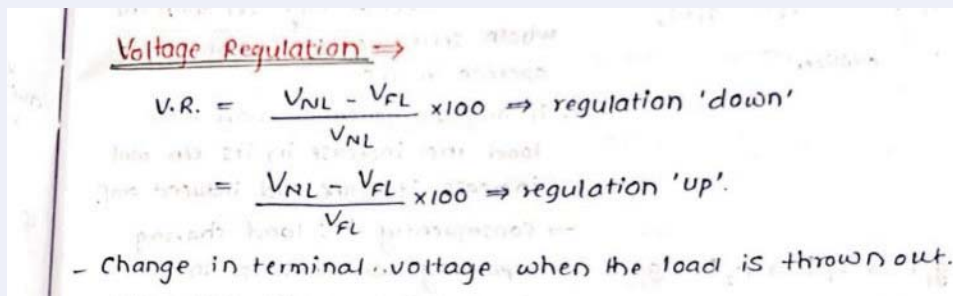 Voltage Regulation ⇒
V.R. = (V_NL - V_FL) / V_NL ×100 ⇒ regulation 'down'
= (V_NL - V_FL) / V_FL ×100 ⇒ regulation 'up'.
- Change in terminal voltage when the load is thrown out.